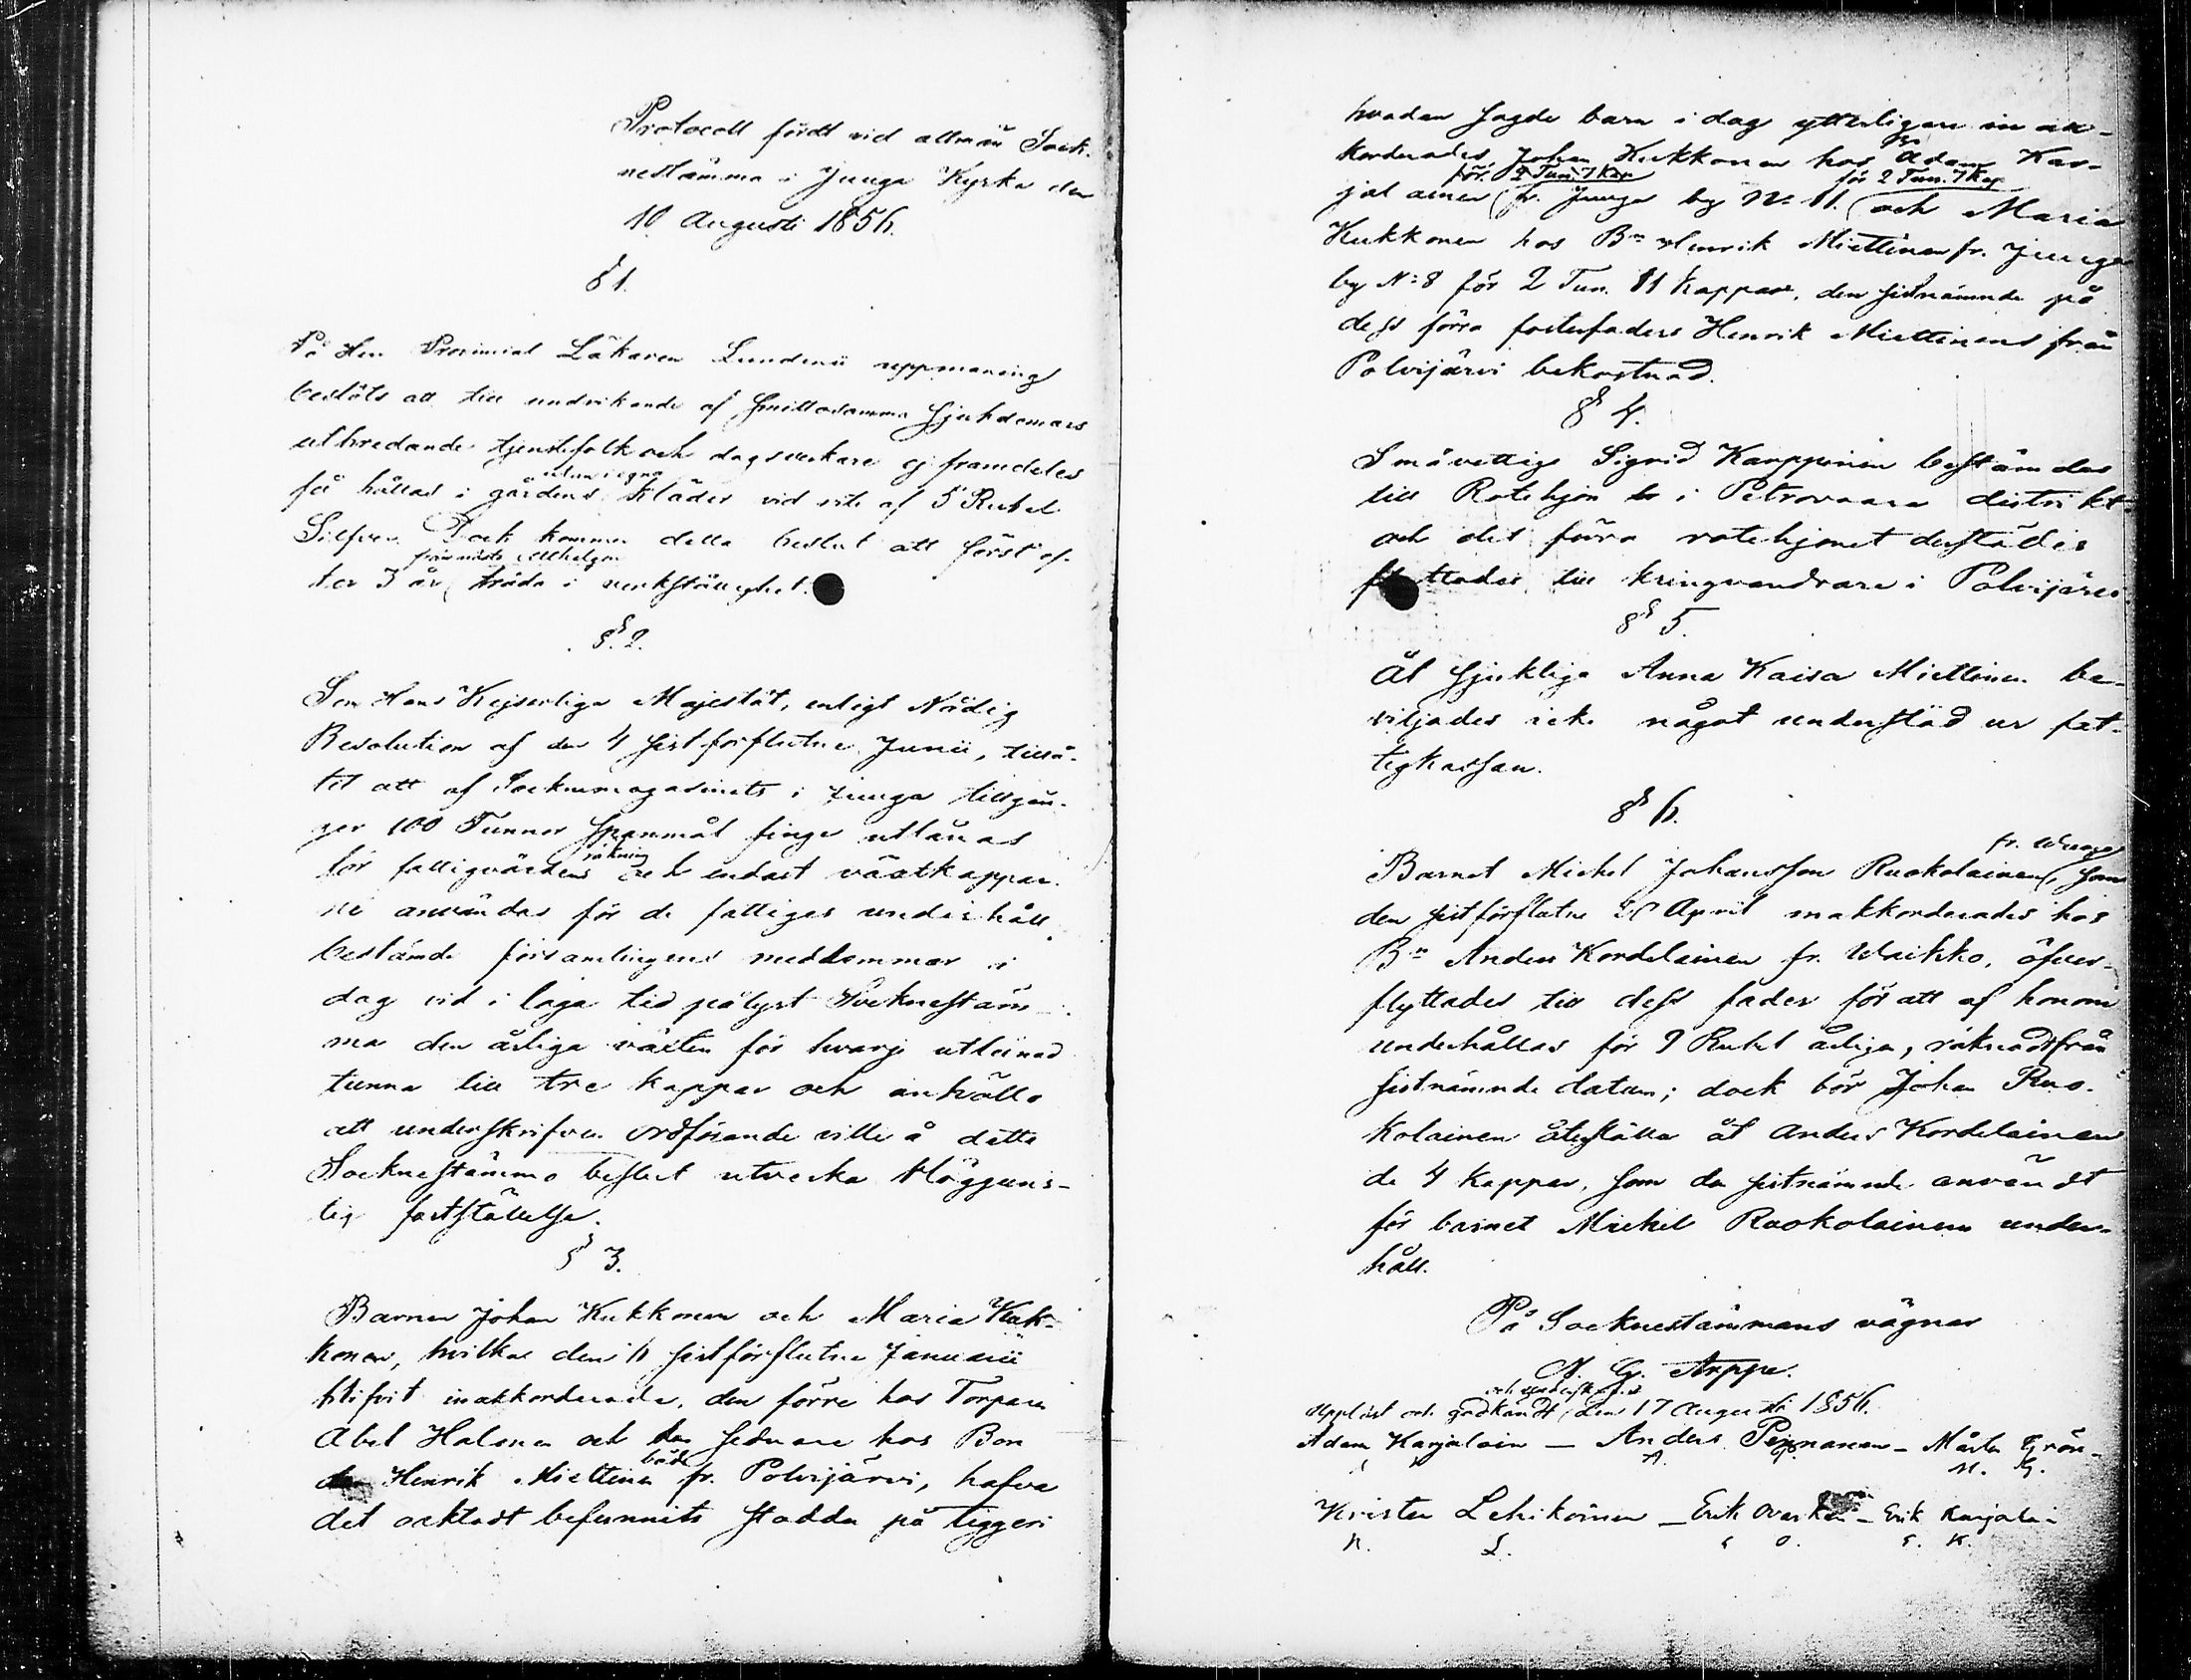 Protocoll fördt vid allmän Sock-
nestämma i Juuga Kyrka den
10 Augusti 1856.
§ 1.
På Herr Provincial Läkaren Lundenii uppmaning
beslöts att till undvikande af smittosamma sjukdomars
utbredande tjenstefolk och dagsverkare ej framdeles
utan i egna
få hållas i gårdens kläder vid vite af 5 Rubel
Silfver. Dock kommer detta beslut att först ef-
från nästa Allhelgon
ter 3 år träda i verkställighet.
§. 2.
Som Hans Kejserliga Majestät, enligt Nådig
Resolution af den 4 sistförflutne Junii, tillå-
tit att af Sockenmagasinets i Juuga tillgån-
gar 100 Tunnor Spanmål finge utlånas
räkning
för fattigvårdens och endast växtkappar-
ne användas för de fattigas underhåll
bestämde församlingens medlemmar i
dag vid i laga tid pålyst Socknestäm-
ma den årliga växten för hvarje utlånad
tunna till tre kappar och anhöllo
att underskrifven ordförande ville å detta
Socknestämmo beslut utverka Högguns-
lig fastställelse.
§ 3.
Barnen Johan Kukkonen och Maria Kuk-
konen, hvilka den 6 sistförflutne Januarii
blifvit inakkorderade, den förre hos Torparen
Abel Halonen och den sednare hos Bon
både
den Henrik Miettinen fr. Polvijärvi, hafva
det oaktadt befunnits stadda på tiggeri
hvadan sagde barn i dag ytterligare in ak-
korderades, Johan Kukkonen hos Adam Kar-
för 2 Tun. 7 Kap
för 2 Tun. 7 Kap
jalainen fr. Juuga by No 11. och Maria
Kukkonen hos Bn Henrik Miettinen fr. Juuga
by N:8 för 2 Tun. 11 Kappar, den sistnämnde på
dess förra fosterfaders Henrik Miettinens från
Polvijärvi bekostnad.
§ 4.
Småvettige Sigrid Karppinen bestämdes
till Rotehjon i Petrovaara distrikt
och det förra rotehjonet derstädes
flyttades till kringvandrare i Polvijärvi.
§ 5.
Åt sjukliga Anna Kaisa Miettinen be-
viljades icke något understöd ur fat-
tigkassan.
§ 6.
fr. Wuoga
Barnet Michel Johansson Ruokolainen, som
den sistförflutne April inakkorderades hos
Bn Anders Kordelainen fr. Waikko, öfver-
flyttades till dess fader för att af honom
underhållas för 9 Rubel årligen, räknadt från
sistnämnde datum; dock bör Johan Ruo-
kolainen återställa åt Anders Kordelainen
de 4 kappar, som den sistnämnde användt
för barnet Michel Ruokolainens under-
håll.
På Socknestämmans vägnar
N. G. Arppe.
och underskrifvet
Uppläst och godkändt den 17 Augusti 1856.
Adam Karjalain — Anders Pennanen — Mårten Grön-
A. M. G.
Krister Lehikoinen — Erik Ovaskain — Erik Karjalai
K. L. E. O. E. K.